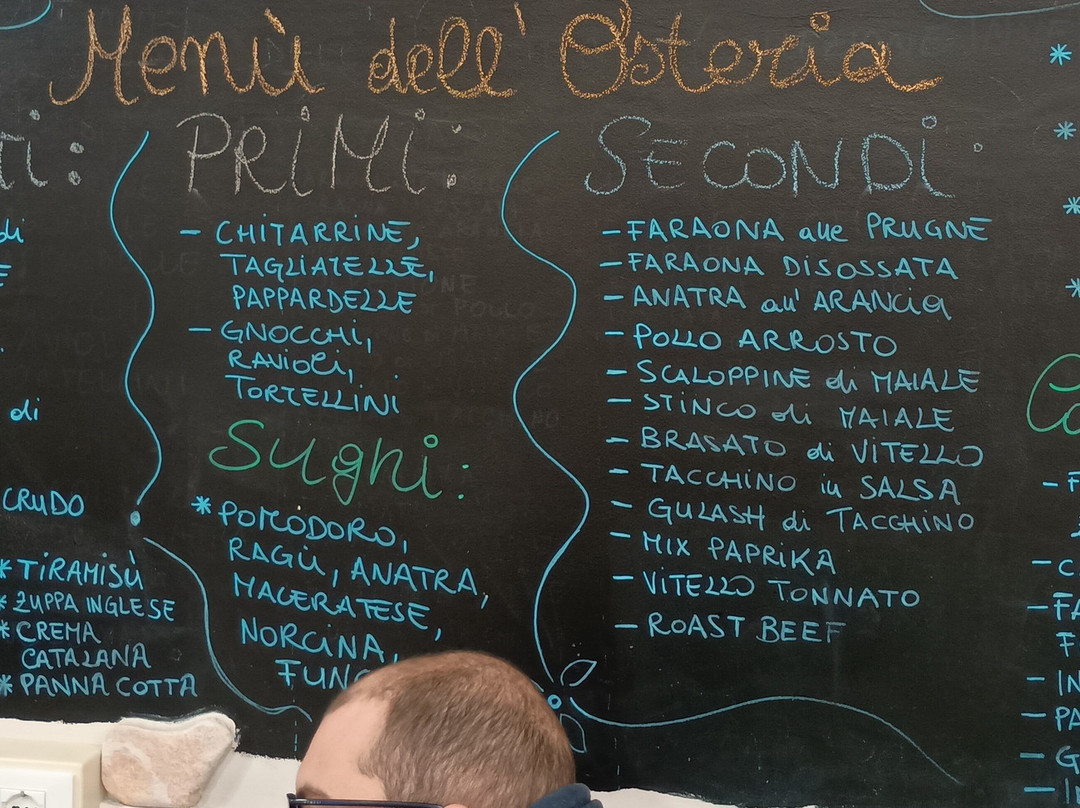 Menù dell'Osteria
di
di
CRUDO
* TIRAMISÙ
* ZUPPA INGLESE
* CREMA
CATALANA
* PANNA COTTA
PRIMI:
- CHITARRINE,
TAGLIATELLE,
PAPPARDELLE
- GNOCCHI,
RAVIOLI,
TORTELLINI
Sughi:
* POMODORO,
RAGÙ, ANATRA,
MACERATESE,
NORCINA,
SECONDI:
- FARAONA alle PRUGNE
- FARAONA DISOSSATA
- ANATRA all'ARANCIA
- POLLO ARROSTO
- SCALOPPINE di MAIALE
- STINCO di MAIALE
- BRASATO di VITELLO
- TACCHINO in SALSA
- GULASH di TACCHINO
- MIX PAPRIKA
- VITELLO TONNATO
- ROAST BEEF